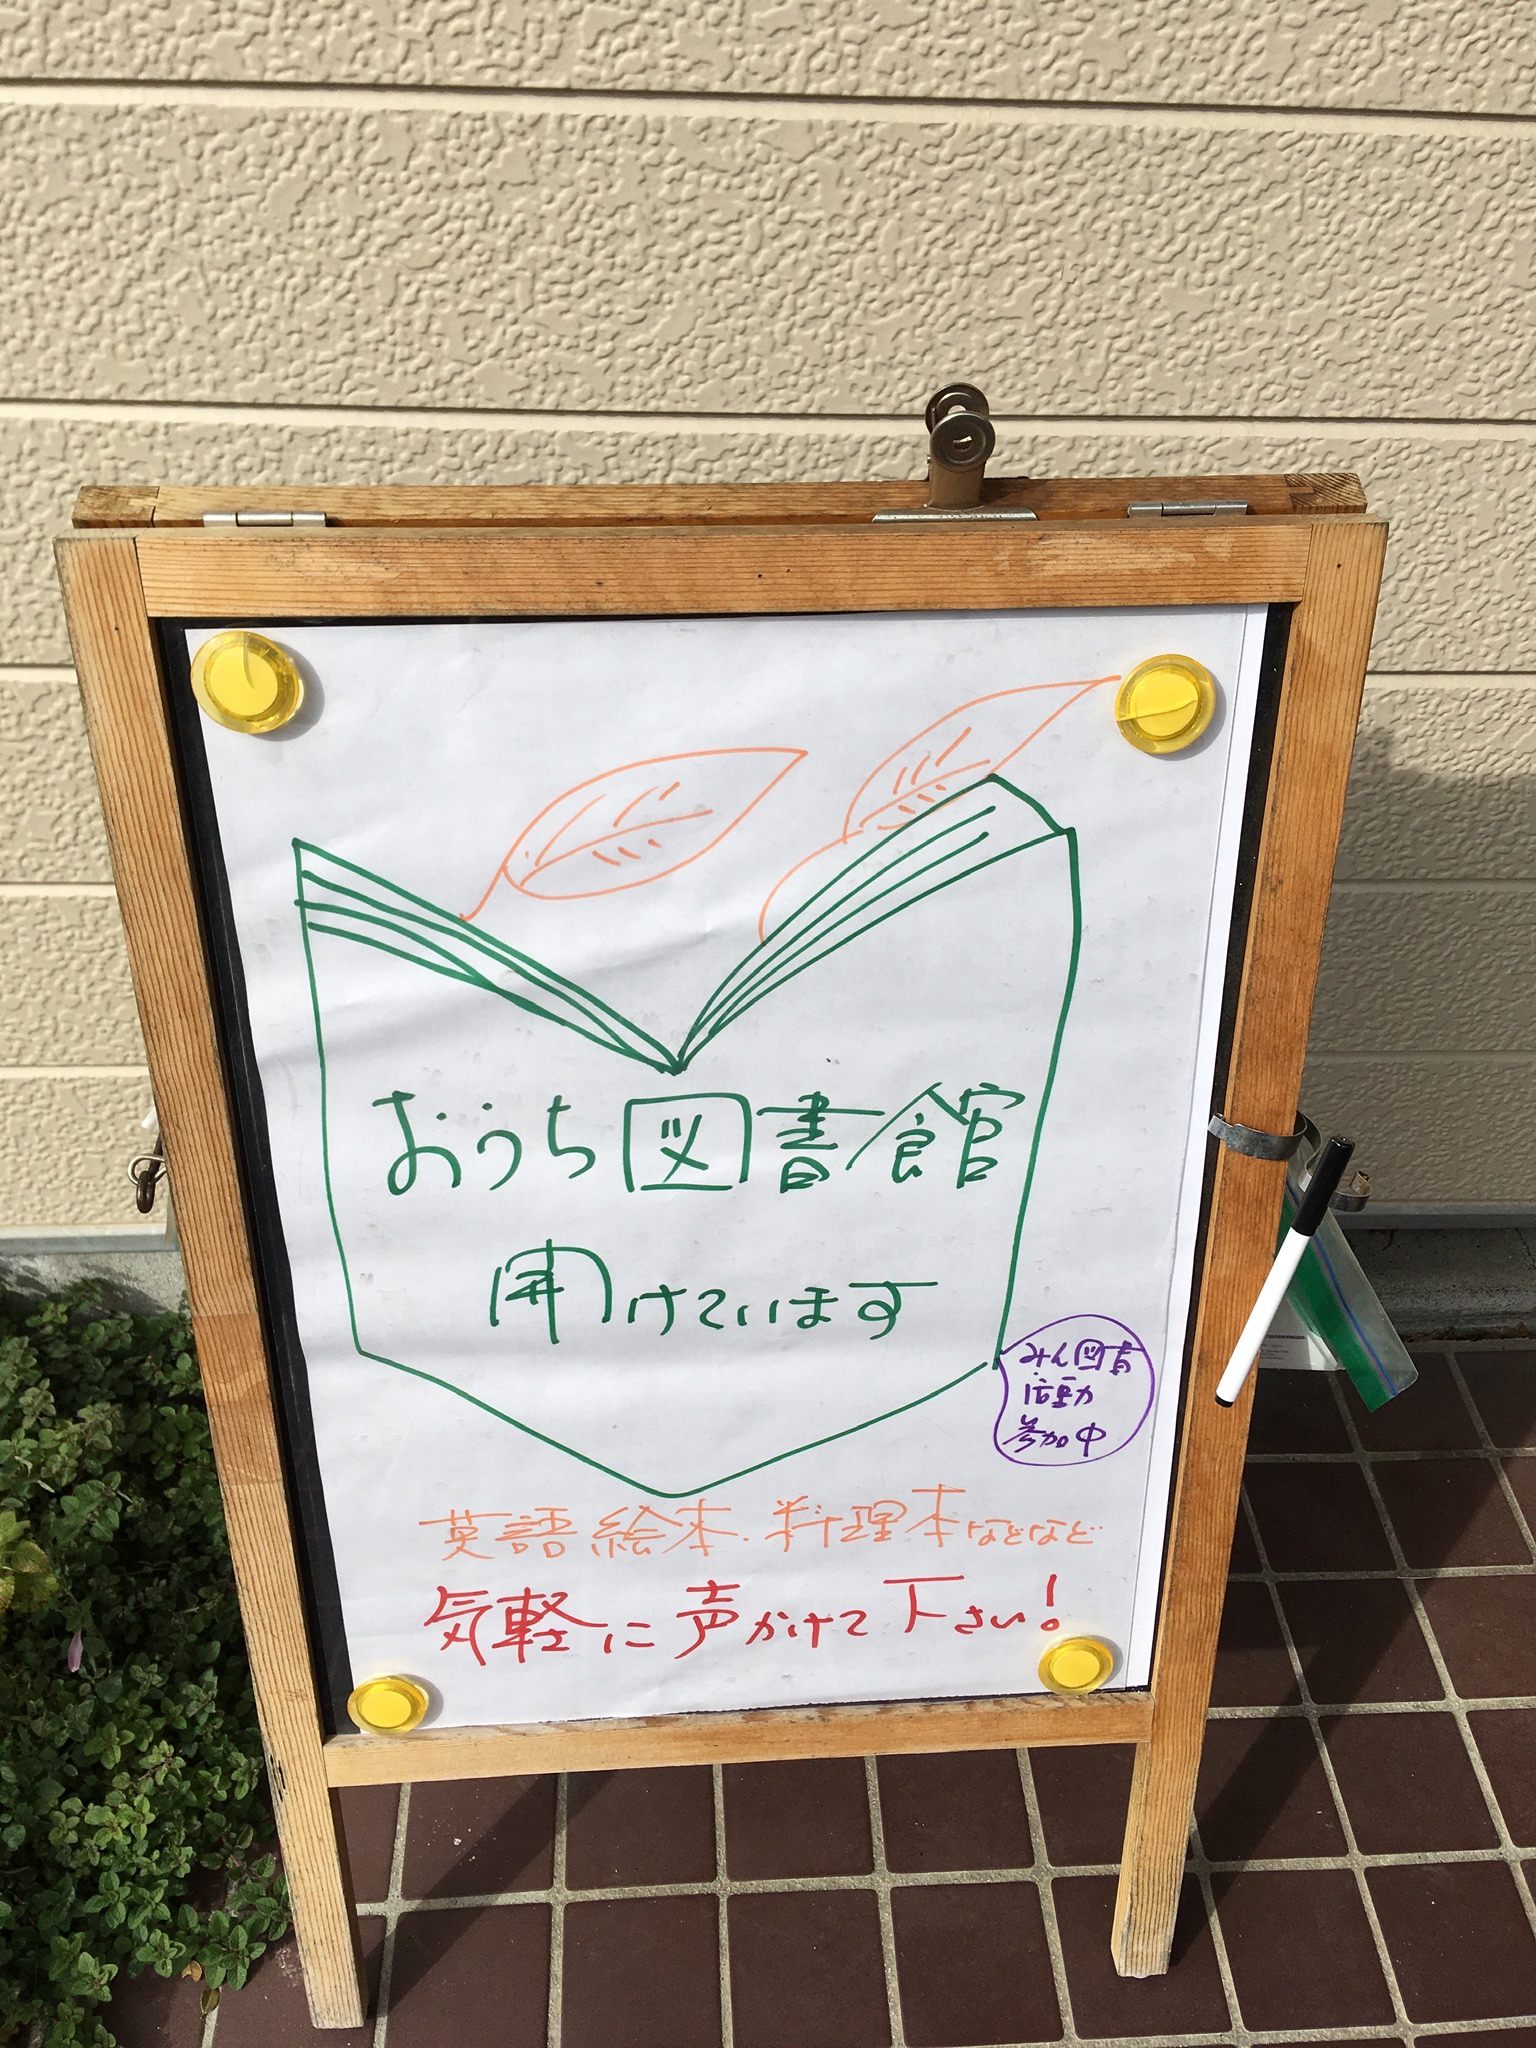 おうち図書館
開けています
みん図書
活動
参加中
英語絵本・料理本などなど
気軽に声かけて下さい!